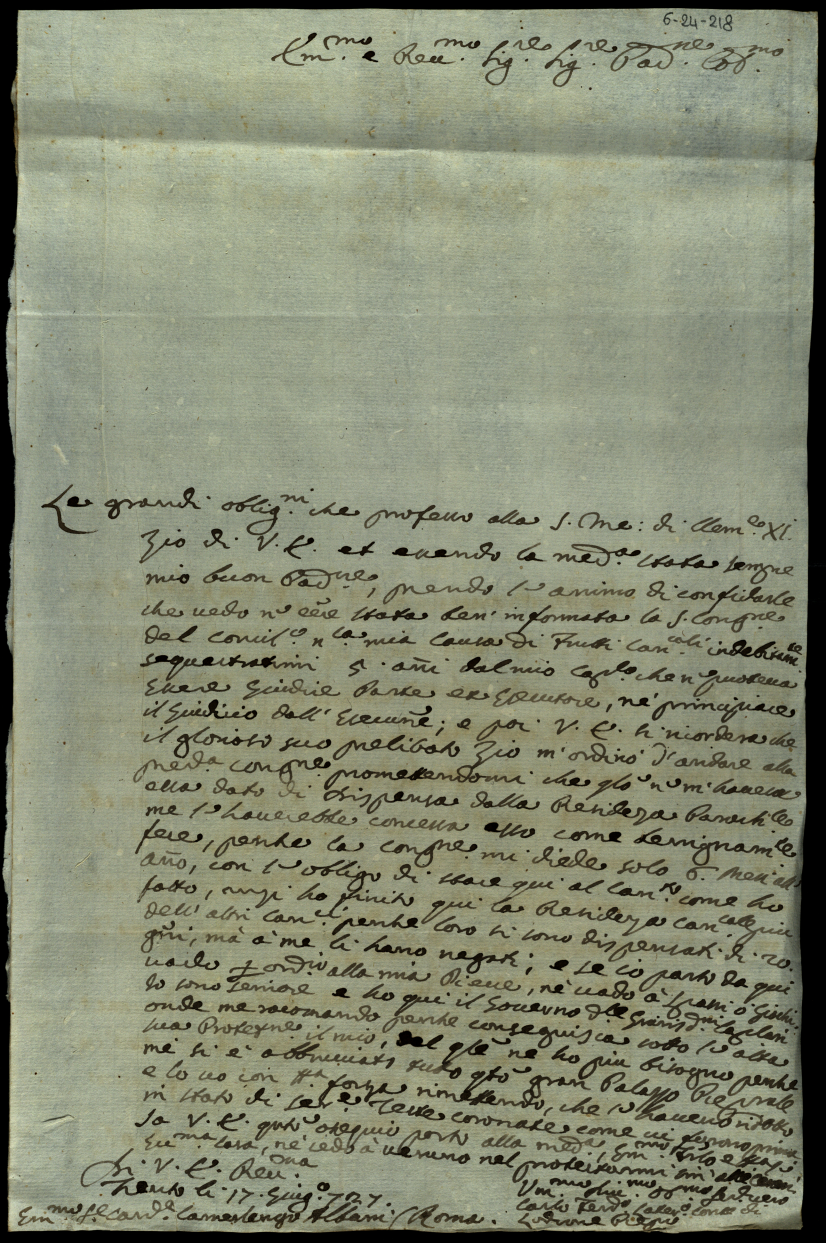 6-24-218
Em.mo e Reu.mo Sig.re Sig.re Pad.ne Col.mo
Le grandi oblig.ni che professo alla S. Me: di Clem.te XI.
Zio di V. E. et essendo la med.a stata sempre
mio buon Pad.ne, prendo l'animo di confidarle
che vedo n' essere stata ben' informata la S. Congne
del Concil.o n.la mia Causa di Frutti Can.cali indebitam.te
sequestratimi 5. ani dal mio Cap.lo che n' poteva
essere Giudice Parte et Esecutore, ne' principiare
il Giudicio dall' Esecune; e poi V. E. si ricorderà che
il glorioso suo prelibato Zio m' ordinò d' andare alla
pred.a Congne promettendomi che qdo n' m' havesse
essa dato di dispensa dalla Residenza Parochi.le
me l' haverebbe concessa esso come benignam.te
fece, perche la Congne mi diede solo 6. mesi all'
año, con l' obligo di stare qui al Can.to come ho
fatto, anzi ho finito qui la Residenza Can.cale piu
dell' altri Can.ci perche loro si sono dispensati di 20.
gni, mà à me li hano negati; e se io parto da qui
vado p ordio alla mia Pieve, ne vado à spassi ò Giochi.
Io sono Seniore e ho qui il Governo dlle Giurisd.ni Cap.lari
onde me racomando perche conseguisca sotto l' alta
sua Protezne il mio, del qle ne ho piu bisogno perche
mi si è abbruciato tutto qto gran Palazzo Pievale
e lo vo con tta forza rimettendo, che l' havevo ridotto
in stato di Teste Coronate come vi furono prima
Sa V. E. qnto ossequio porto alla med.a, Em.mo
Ecc.ma Casa, ne cedo à veruno nel protestarmi
Di V. E. Reu.ma
Trento li 17. Giug.o 727.
Vm.mo Div.mo Obl.mo Ser. vero
Carlo Ferd.o Conte di
Lodrone
Em.mo S.e Card.e Camerlengo Albani / Roma.